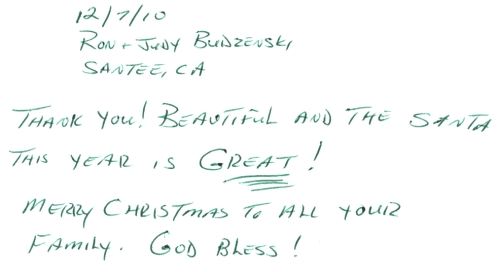 12/7/10
RON + JUDY BUDZENSKI
SANTEE, CA
THANK YOU! BEAUTIFUL AND THE SANTA
THIS YEAR IS GREAT!
MERRY CHRISTMAS TO ALL YOUR
FAMILY. GOD BLESS!